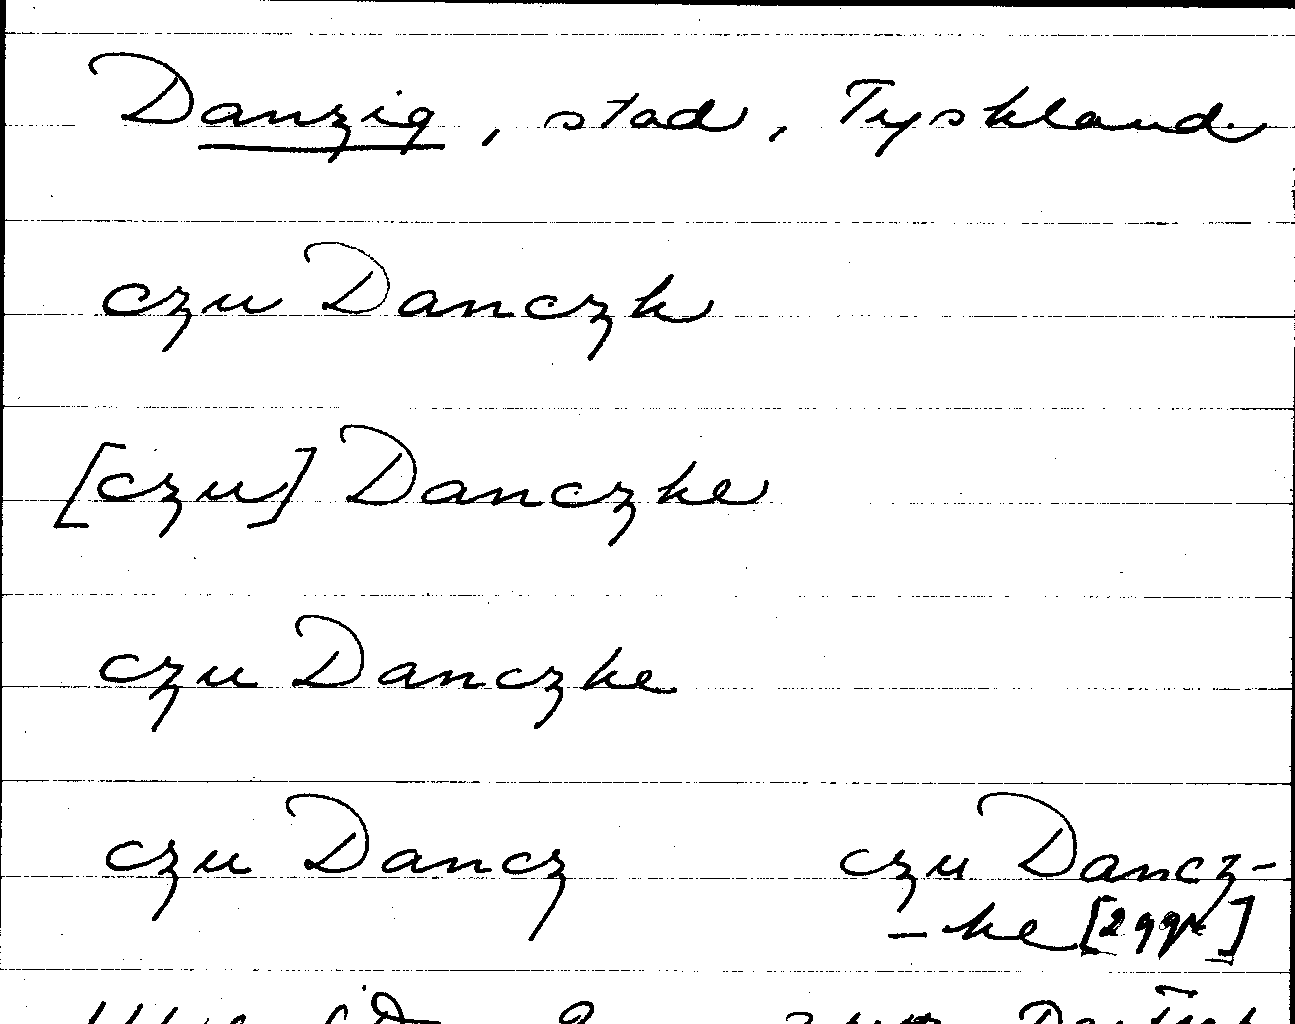 Danzig, stad, Tyskland.
czu Danczk
[czu] Danczke
czu Danczke
czu Dancz czu Dancz-
-ke [2 ggr]